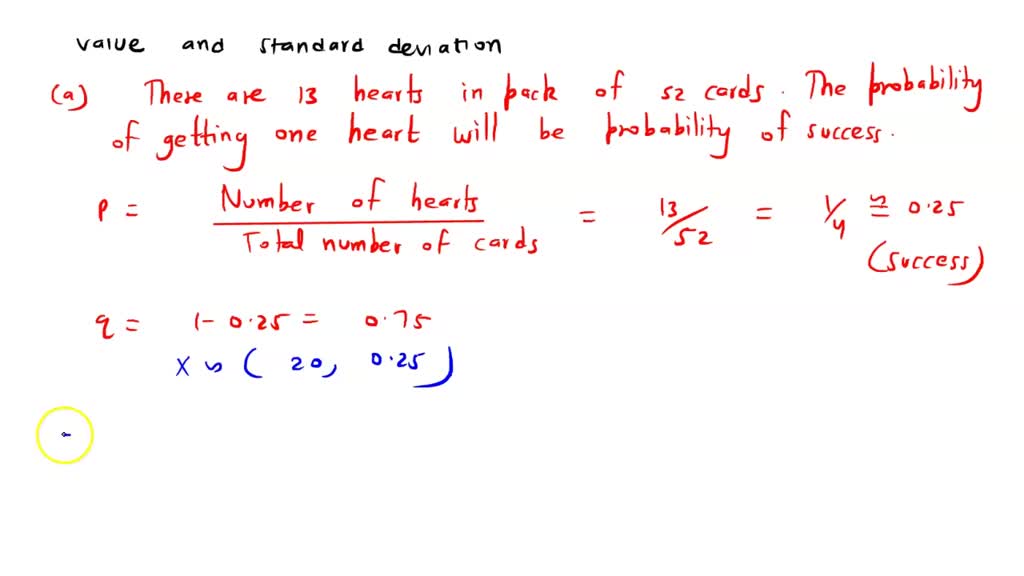 value and standard deviation
(a) There are 13 hearts in pack of 52 cards. The probability
of getting one heart will be probability of success.
p = Number of hearts / Total number of cards = 13/52 = 1/4 ≅ 0.25
(success)
q = 1- 0.25 = 0.75
X ~ ( 20, 0.25 )